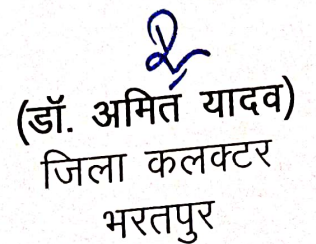 (डॉ. अमित यादव)
जिला कलक्टर
भरतपुर